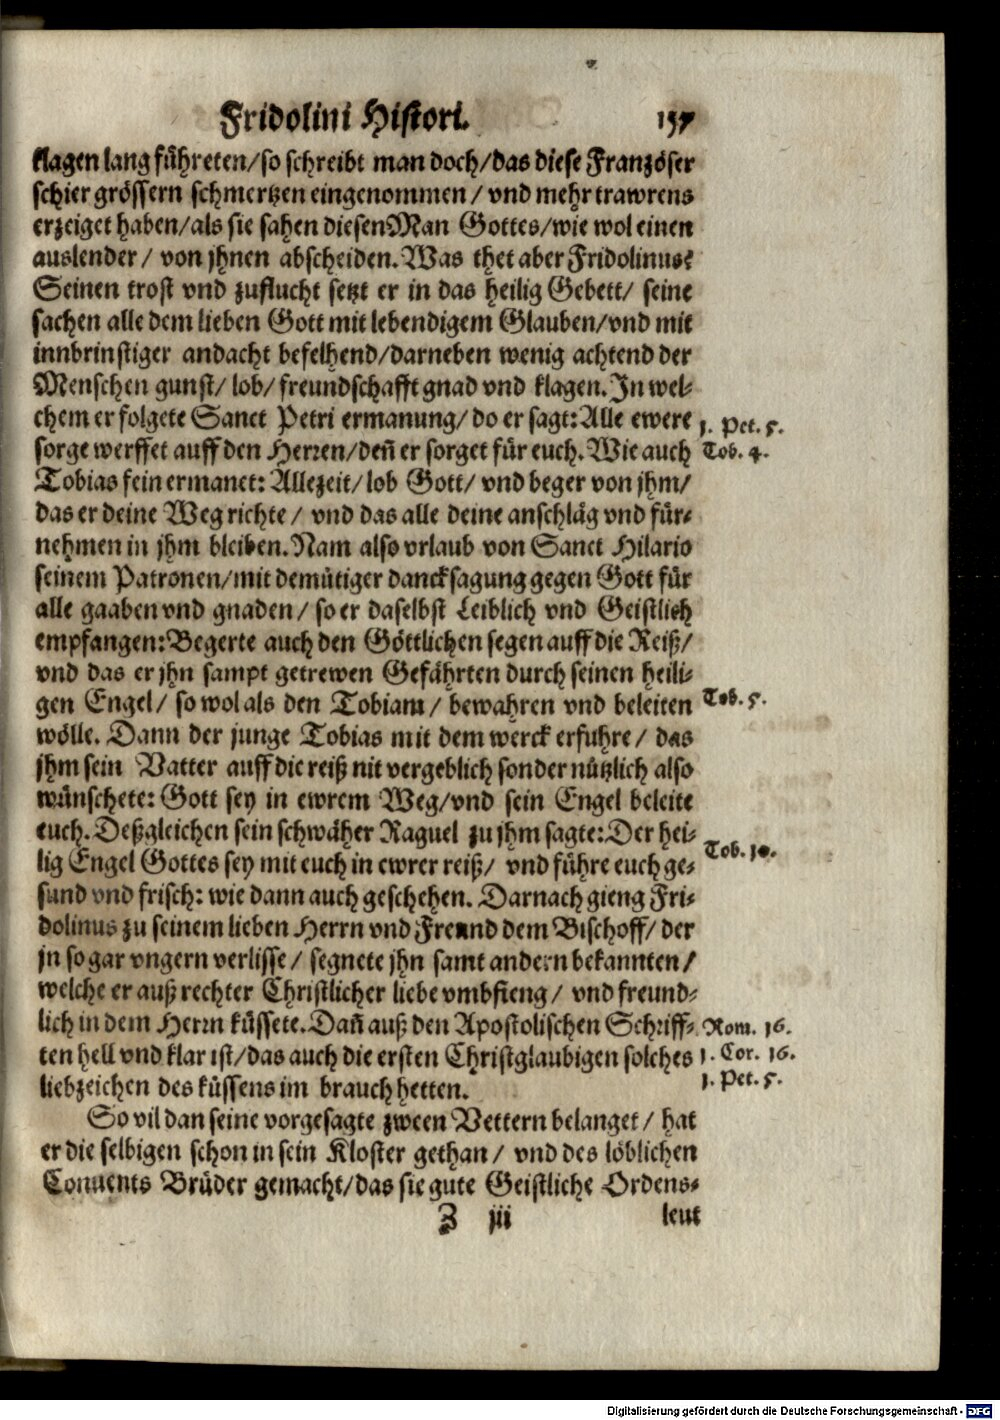 Fridolini Histori. 157
klagen lang führeten/so schreibt man doch/das diese Französer
schier grössern schmertzen eingenommen/ vnd mehr trawrens
erzeiget haben/als sie sahen diesen Man Gottes/wie wol einen
auslender/ von jhnen abscheiden. Was thet aber Fridolinus?
Seinen trost vnd zuflucht setzt er in das heilig Gebett/ seine
sachen alle dem lieben Gott mit lebendigem Glauben/vnd mit
innbrinstiger andacht befelhend/darneben wenig achtend der
Menschen gunst/ lob/ freundschafft gnad vnd klagen. In wel-
chem er folgete Sanct Petri ermanung/ do er sagt: Alle ewere
1. Pet. 5.
sorge werffet auff den Herren/deñ er sorget für euch. Wie auch
Tob. 4.
Tobias fein ermanet: Allezeit/ lob Gott/ vnd beger von jhm/
das er deine Weg richte/ vnd das alle deine anschläg vnd für-
nehmen in jhm bleiben. Nam also vrlaub von Sanct Hilario
seinem Patronen/mit demütiger dancksagung gegen Gott für
alle gaaben vnd gnaden/ so er daselbst Leiblich vnd Geistlich
empfangen: Begerte auch den Göttlichen segen auff die Reiß/
vnd das er jhn sampt getrewen Gefährten durch seinen heili-
gen Engel/ so wol als den Tobiam/ bewahren vnd beleiten
Tob. 5.
wölle. Dann der junge Tobias mit dem werck erfuhre/ das
jhm sein Vatter auff die reiß nit vergeblich sonder nützlich also
wünschete: Gott sey in ewrem Weg/vnd sein Engel beleite
euch. Deßgleichen sein schwäher Raguel zu jhm sagte: Der hei-
lig Engel Gottes sey mit euch in ewrer reiß/ vnd führe euch ge-
Tob. 10.
sund vnd frisch: wie dann auch geschehen. Darnach gieng Fri-
dolinus zu seinem lieben Herrn vnd Freund dem Bischoff/ der
jn so gar vngern verlisse/ segnete jhn samt andern bekannten/
welche er auß rechter Christlicher liebe vmbfieng/ vnd freund-
lich in dem Herrn küssete. Dañ auß den Apostolischen Schriff-
Rom. 16.
ten hell vnd klar ist/das auch die ersten Christglaubigen solches
1. Cor. 16.
liebzeichen des küssens im brauch hetten.
1. Pet. 5.
So vil dan seine vorgesagte zween Vettern belanget/ hat
er die selbigen schon in sein Kloster gethan/ vnd des löblichen
Conuents Brüder gemacht/das sie gute Geistliche Ordens-
Z iii leut
Digitalisierung gefördert durch die Deutsche Forschungsgemeinschaft - DFG